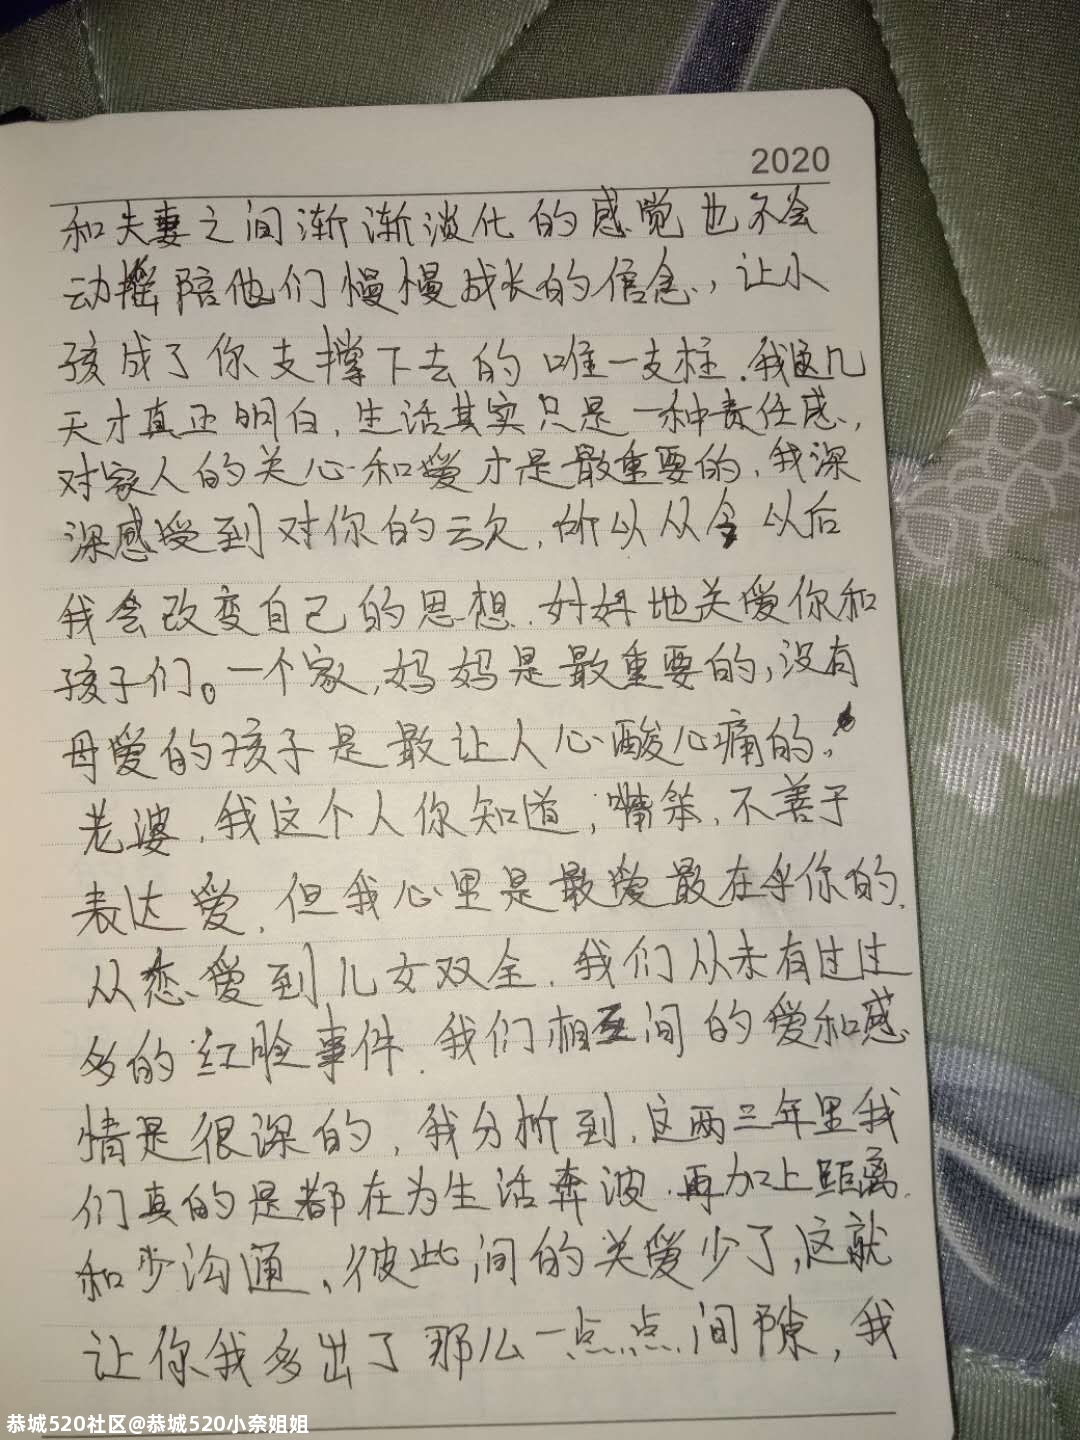 2020
和夫妻之间渐渐淡化的感觉也不会
动摇陪他们慢慢成长的信念，让小
孩成了你支撑下去的唯一支柱.我这几
天才真正明白，生活其实只是一种责任感，
对家人的关心和爱才是最重要的，我深
深感受到对你的亏欠，所以从今以后
我会改变自己的思想，好好地关爱你和
孩子们。一个家，妈妈是最重要的，没有
母爱的孩子是最让人心酸心痛的，
老婆，我这个人你知道，嘴笨，不善于
表达爱，但我心里是最爱最在乎你的，
从恋爱到儿女双全，我们从未有过过
多的红脸事件.我们相互间的爱和感
情是很深的，我分析到，这两三年里我
们真的是都在为生活奔波，再加上距离
和少沟通、彼此间的关爱少了，这就
让你我多出了那么一点点间隙，我
恭城520社区@恭城520小奈姐姐